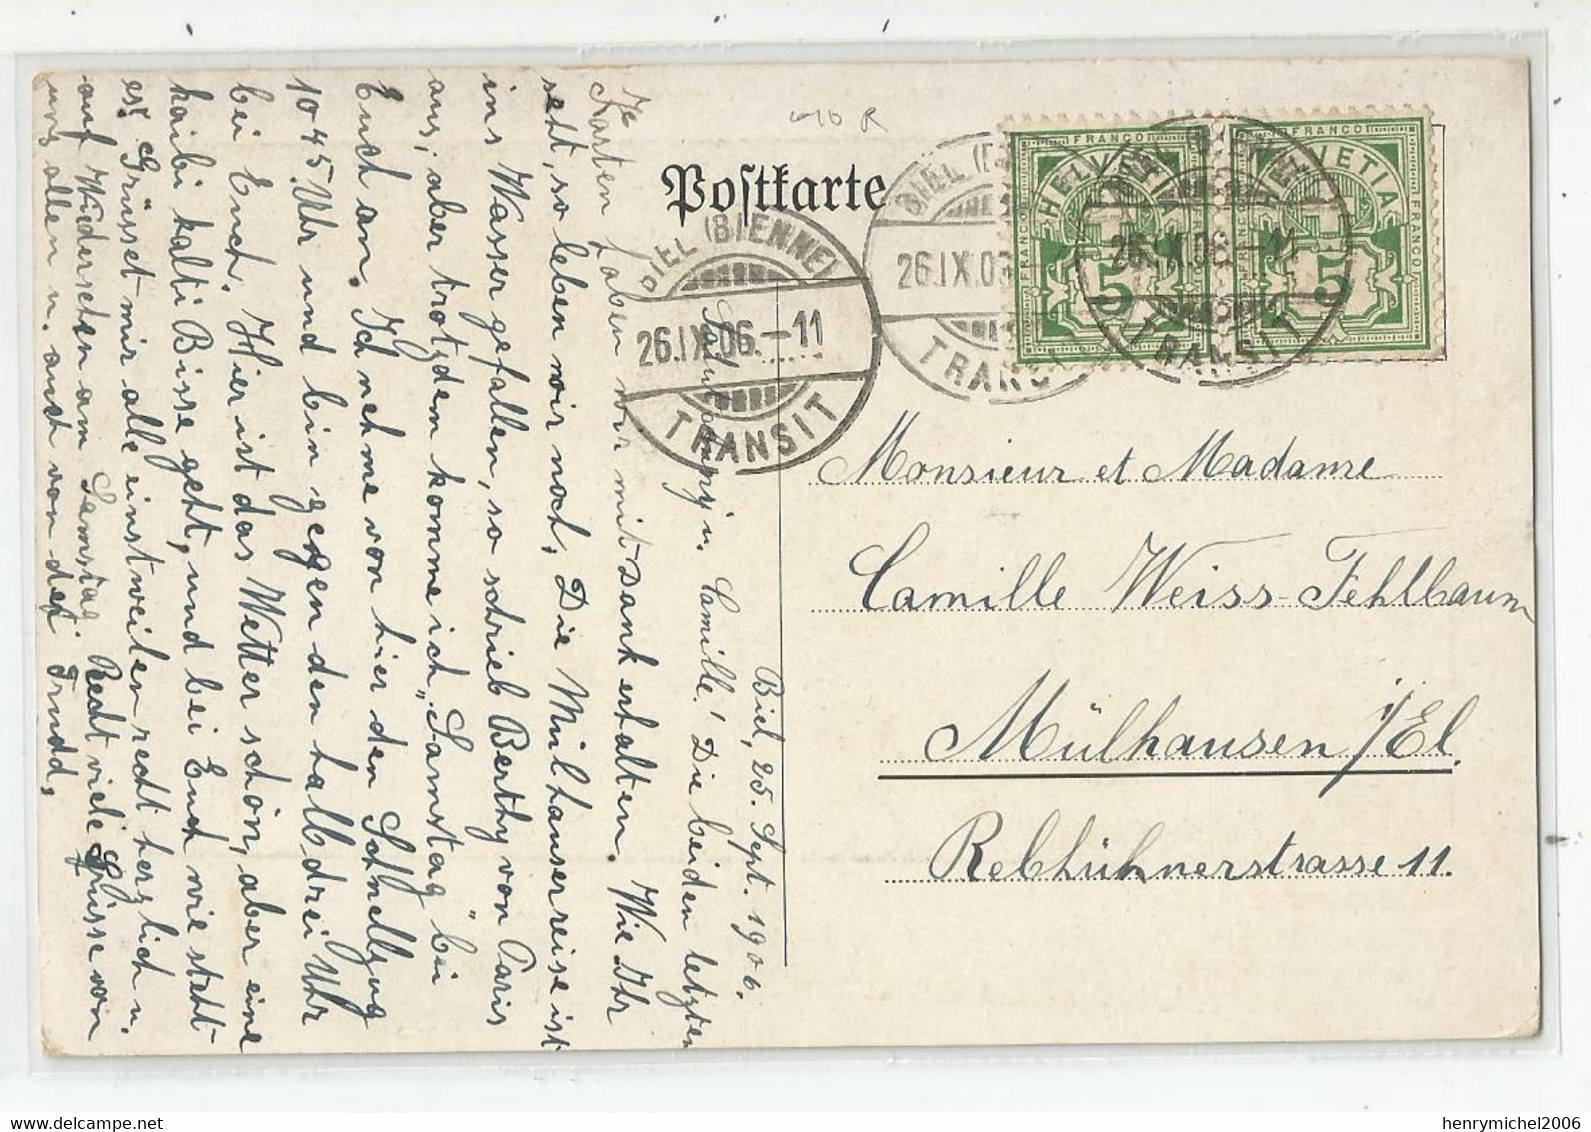 Postkarte
BIEL (BIENNE)
26.IX.06.-11
TRANSIT
BIEL (B
26.IX.06
TRANS
26.IX.06.-11
TRANSIT
FRANCO
HELVETIA
5
FRANCO
HELVETIA
5
Monsieur et Madame
Camille Weiss-Fehlbaum
Mülhausen i/El.
Rebhühnerstrasse 11.
Biel, 25. Sept. 1906.
Camille! Die beiden letzten
Karten haben wir mit Dank erhalten. Wie Ihr
seht, so leben wir noch. Die Mülhauserreise ist
ins Wasser gefallen, so schrieb Berthy von Paris
aus, aber trotzdem komme ich „Samstag" bei
Euch an. Ich nehme von hier den Schnellzug
10 45 Uhr und bin gegen den halb drei Uhr
bei Euch. Hier ist das Wetter schön, aber eine
kaibi kalti Bisse geht, und bei Euch wie steht
es? Grüsset mir alle einstweilen recht herzlich u.
auf Wiedersehen am Samstag. Recht viele Grüsse von
uns allen u. auch von der Trudd,
henrymichel2006